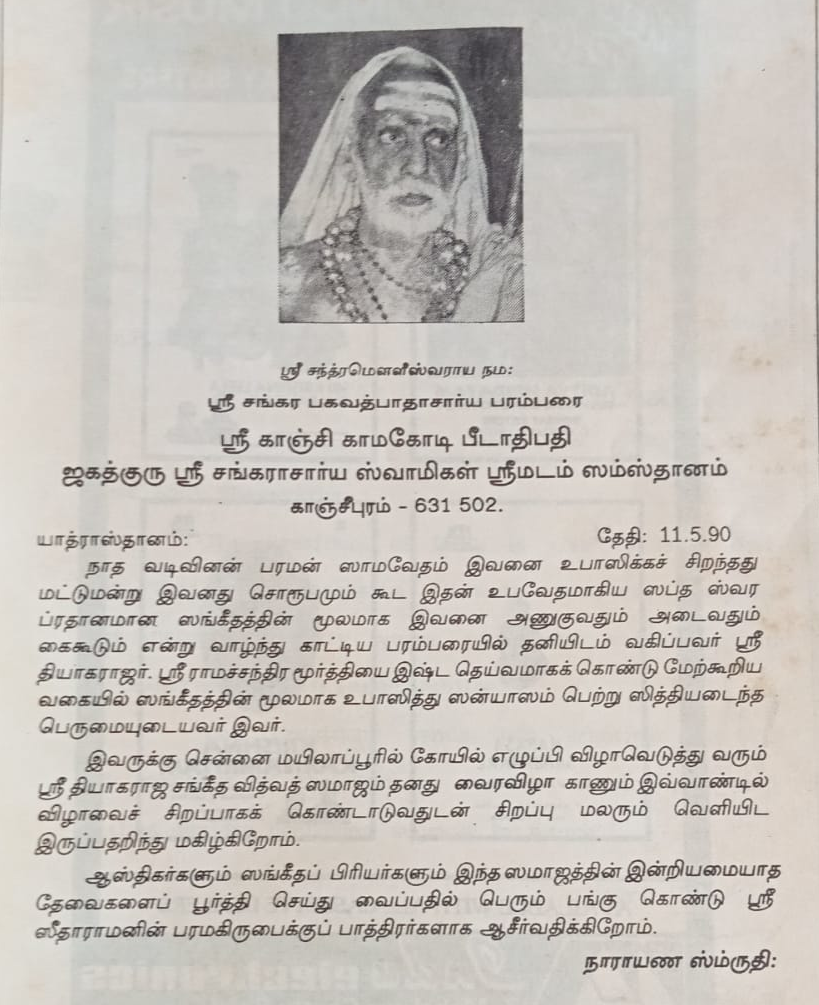 ஸ்ரீ சந்த்ரமௌளீஸ்வராய நம:
ஸ்ரீ சங்கர பகவத்பாதாசார்ய பரம்பரை
ஸ்ரீ காஞ்சி காமகோடி பீடாதிபதி
ஜகத்குரு ஸ்ரீ சங்கராசார்ய ஸ்வாமிகள் ஸ்ரீமடம் ஸம்ஸ்தானம்
காஞ்சீபுரம் - 631 502.
யாத்ராஸ்தானம்: தேதி: 11.5.90
நாத வடிவினன் பரமன் ஸாமவேதம் இவனை உபாஸிக்கச் சிறந்தது
மட்டுமன்று இவனது சொரூபமும் கூட இதன் உபவேதமாகிய ஸப்த ஸ்வர
ப்ரதானமான ஸங்கீதத்தின் மூலமாக இவனை அணுகுவதும் அடைவதும்
கைகூடும் என்று வாழ்ந்து காட்டிய பரம்பரையில் தனியிடம் வகிப்பவர் ஸ்ரீ
தியாகராஜர். ஸ்ரீ ராமச்சந்திர மூர்த்தியை இஷ்ட தெய்வமாகக் கொண்டு மேற்கூறிய
வகையில் ஸங்கீதத்தின் மூலமாக உபாஸித்து ஸன்யாஸம் பெற்று ஸித்தியடைந்த
பெருமையுடையவர் இவர்.
இவருக்கு சென்னை மயிலாப்பூரில் கோயில் எழுப்பி விழாவெடுத்து வரும்
ஸ்ரீ தியாகராஜ சங்கீத வித்வத் ஸமாஜம் தனது வைரவிழா காணும் இவ்வாண்டில்
விழாவைச் சிறப்பாகக் கொண்டாடுவதுடன் சிறப்பு மலரும் வெளியிட
இருப்பதறிந்து மகிழ்கிறோம்.
ஆஸ்திகர்களும் ஸங்கீதப் பிரியர்களும் இந்த ஸமாஜத்தின் இன்றியமையாத
தேவைகளைப் பூர்த்தி செய்து வைப்பதில் பெரும் பங்கு கொண்டு ஸ்ரீ
ஸீதாராமனின் பரமகிருபைக்குப் பாத்திரர்களாக ஆசீர்வதிக்கிறோம்.
நாராயண ஸ்ம்ருதி: